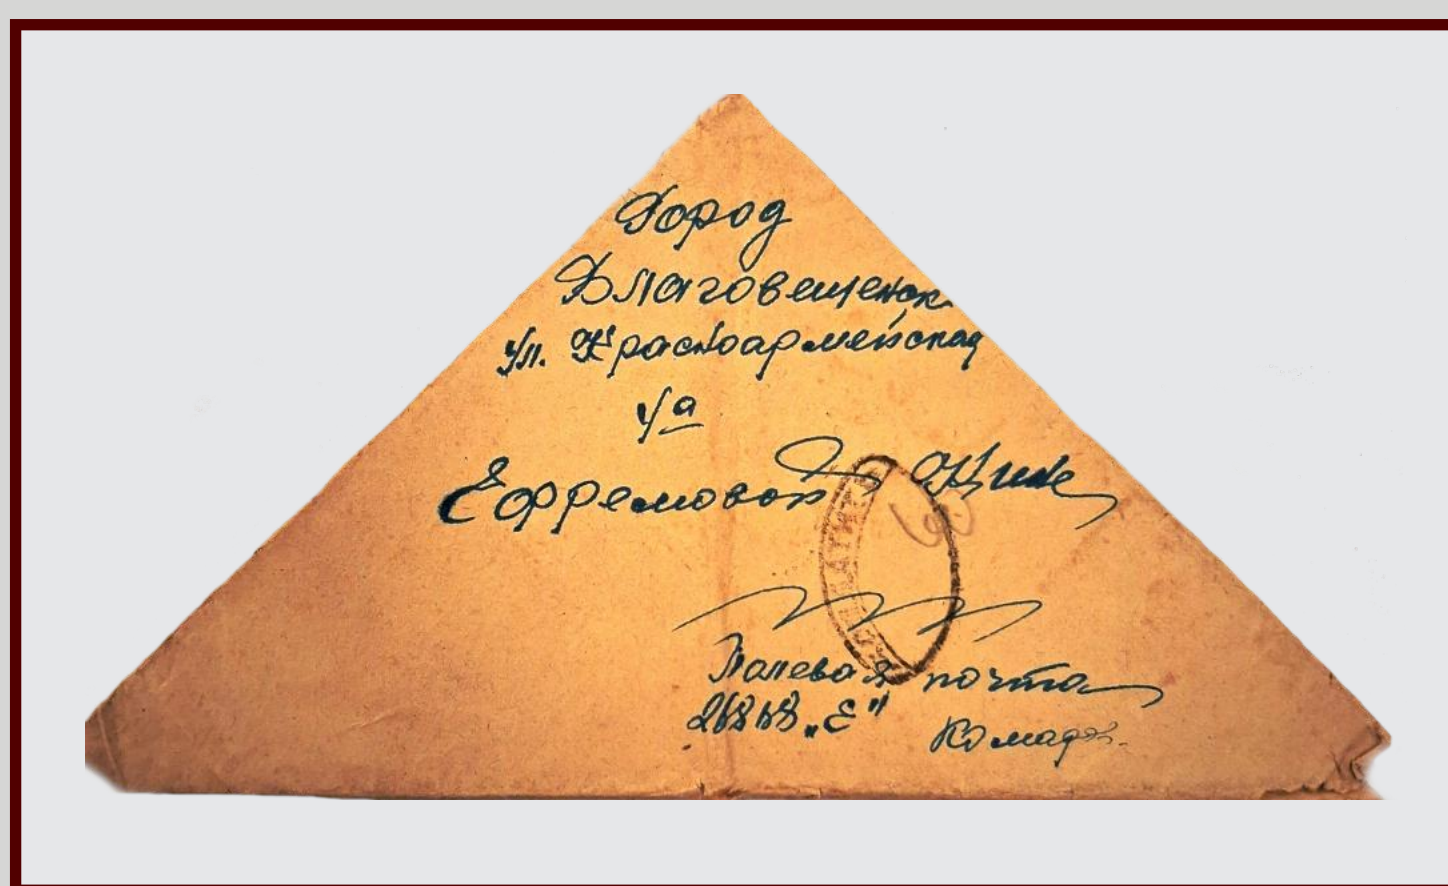 Город
Благовещенск
ул. Красноармейская
Ефремовой Нине
Полевая почта
„Е"